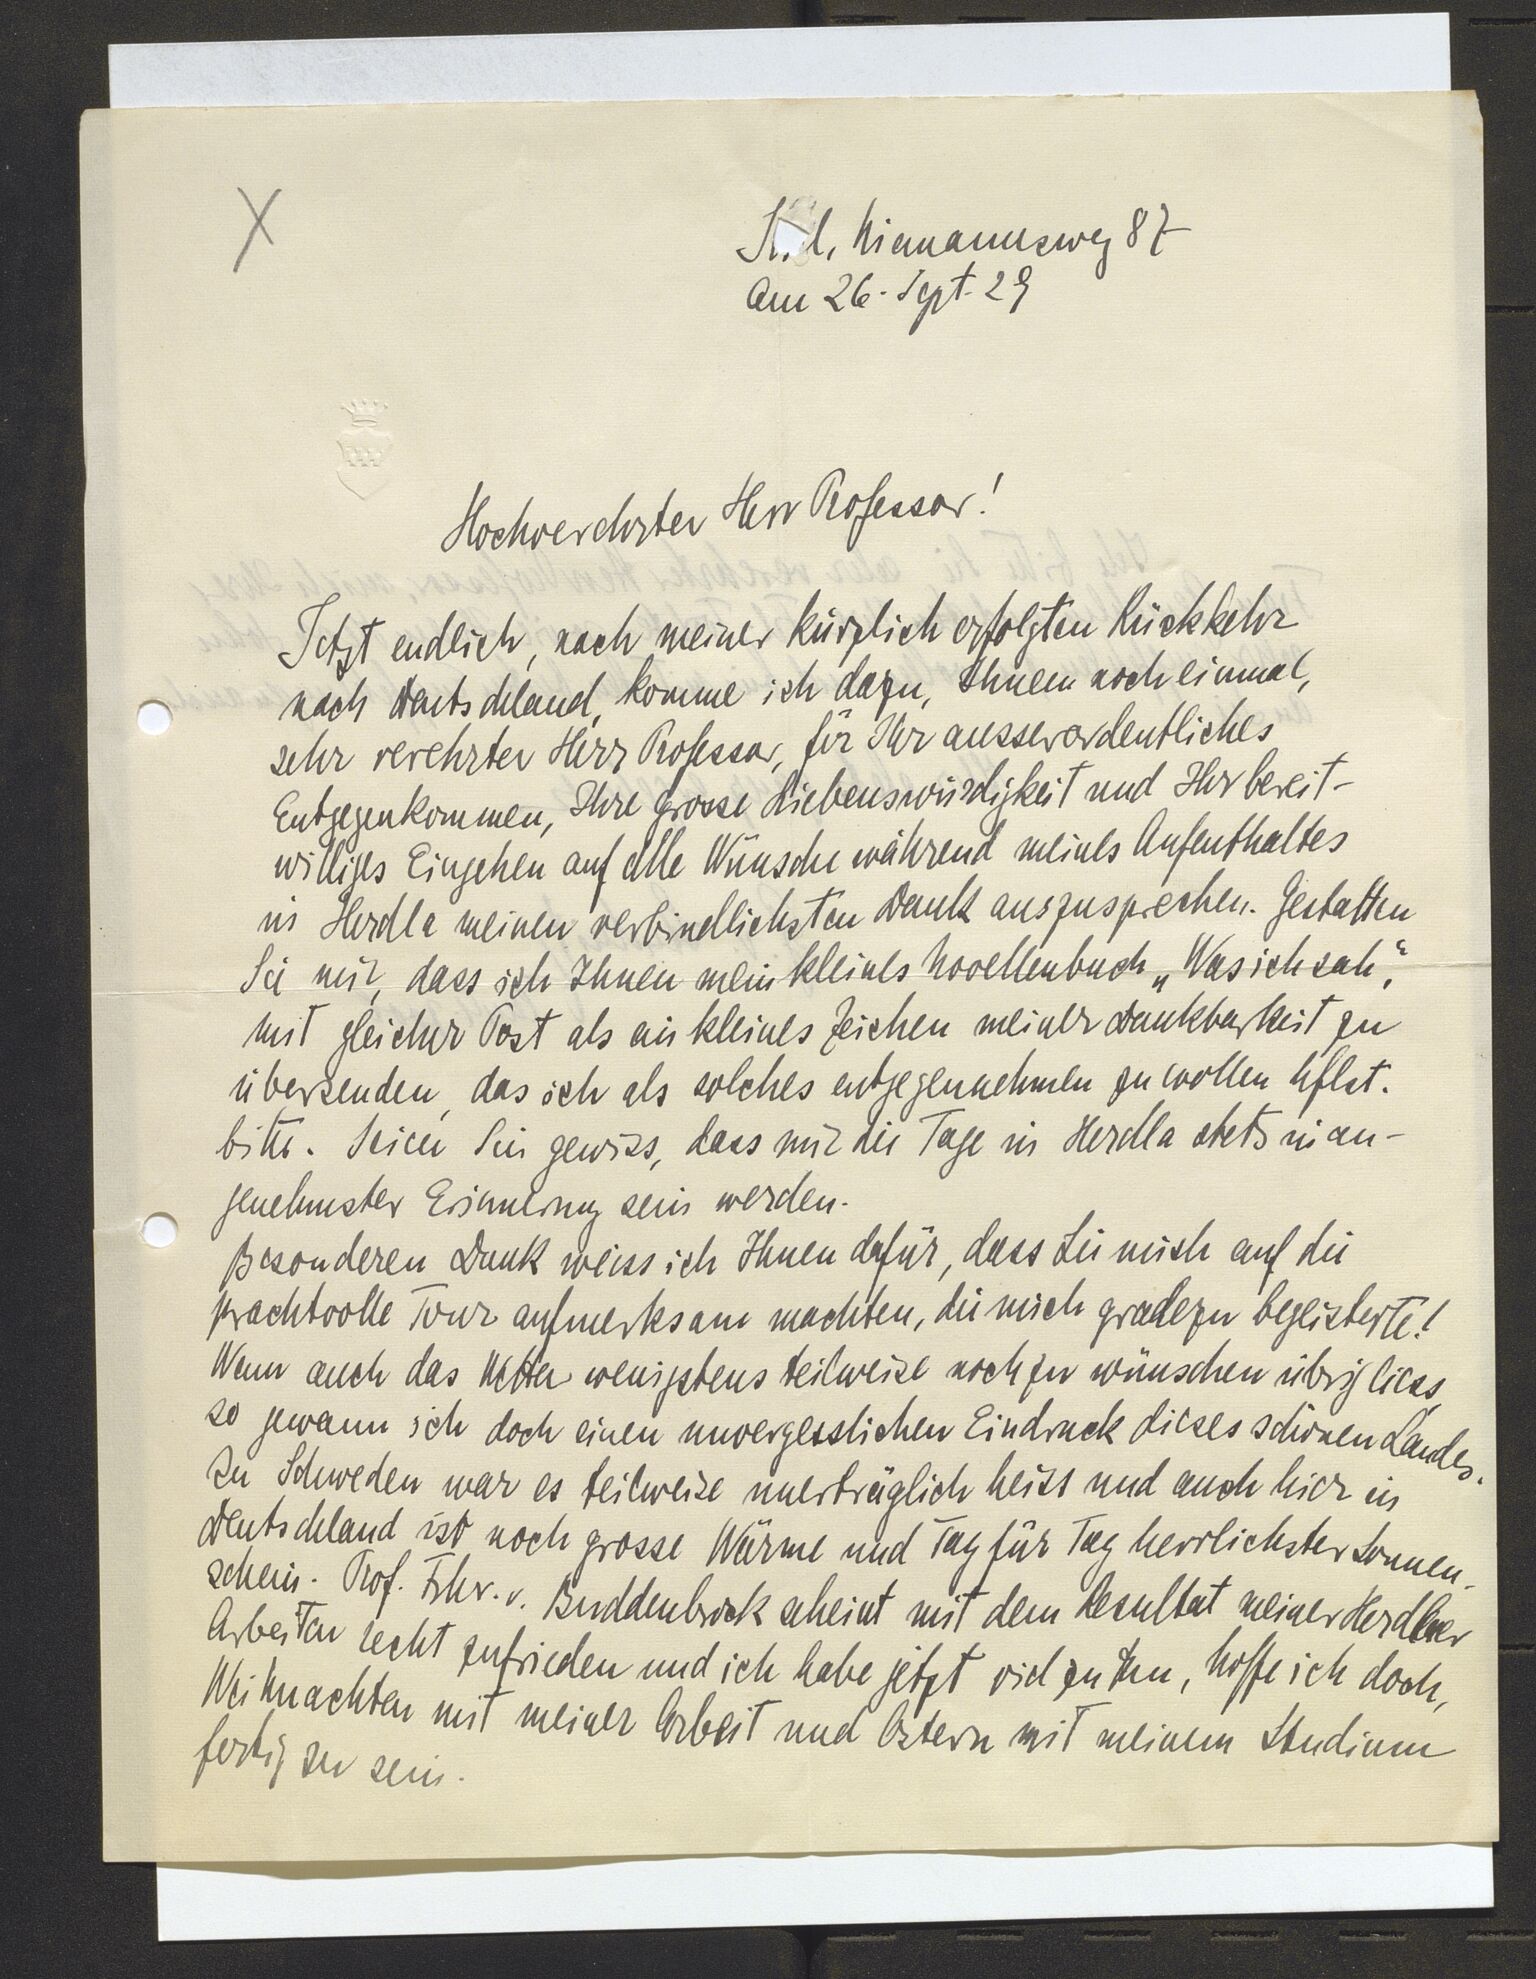 Kiel, Niemannsweg 87
Am 26. Sept. 29
Hochverehrter Herr Professor!
Jetzt endlich, nach meiner kürzlich erfolgten Rückkehr
nach Deutschland, komme ich dazu, Ihnen noch einmal,
sehr verehrter Herr Professor, für Ihr ausserordentliches
Entgegenkommen, Ihre grosse Liebenswürdigkeit und Ihr bereit-
williges Eingehen auf alle Wünsche während meines Aufenthaltes
in Herdla meinen verbindlichsten Dank auszusprechen. Gestatten
Sie mir, dass ich Ihnen mein kleines Novellenbuch „Was ich sah",
mit gleicher Post als ein kleines Zeichen meiner Dankbarkeit zu
übersenden, das ich als solches entgegennehmen zu wollen höflst.
bitte. Seien Sie gewiss, dass mir die Tage in Herdla stets in an-
genehmster Erinnerung sein werden.
Besonderen Dank weiss ich Ihnen dafür, dass Sie mich auf die
prachtvolle Tour aufmerksam machten, die mich gradezu begeisterte!
Wenn auch das Wetter wenigstens teilweise noch zu wünschen übrig liess,
so gewann ich doch einen unvergesslichen Eindruck dieses schönen Landes.
In Schweden war es teilweise unerträglich heiss und auch hier in
Deutschland ist noch grosse Wärme und Tag für Tag herrlichster Sonnen-
schein. Prof. Frhr. v. Buddenbrock scheint mit dem Resultat meiner Herdlaer
Arbeiten recht zufrieden und ich habe jetzt viel zu tun, hoffe ich doch,
Weihnachten mit meiner Arbeit und Ostern mit meinem Studium
fertig zu sein.